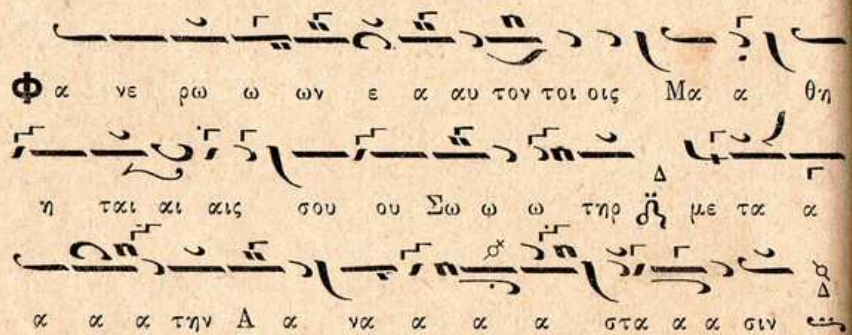 Φ α νε ρω ω ων ε α αυ τον τοι οις Μα α θη
η ται αι αις σου ου Σω ω ω τηρ Δ με τα α
α α α την Α α να α α α στα α α σιν Δ